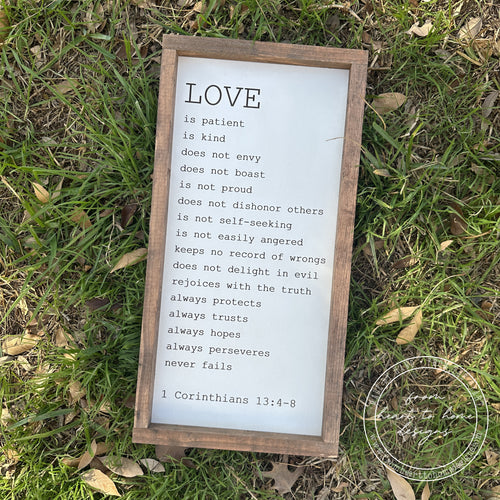 LOVE
is patient
is kind
does not envy
does not boast
is not proud
does not dishonor others
is not self-seeking
is not easily angered
keeps no record of wrongs
does not delight in evil
rejoices with the truth
always protects
always trusts
always hopes
always perseveres
never fails
1 Corinthians 13:4-8
from
heart to home
designs